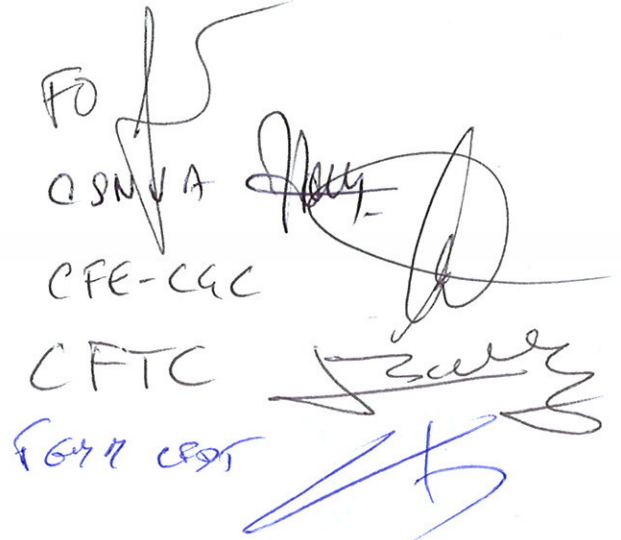 FO
CSNVA
CFE-CGC
CFTC
FGMM CFDT